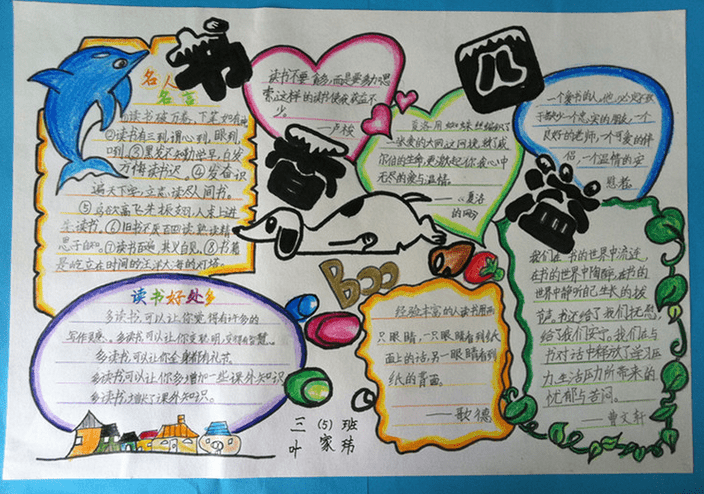 书
香
四
溢
名人
名言
①读书破万卷,下笔如有神
②读书有三到,谓心到,眼到
口到。③黑发不知勤学早,白发
方悔读书迟。④发奋识
遍天下字,立志读尽人间书。
⑤鸟欲高飞先振翅,人求上进
先读书。⑥旧书不厌百回读,熟读精
思子自知。⑦读书百遍,其义自见。⑧书籍
是屹立在时间的汪洋大海的灯塔。
读书不要贪多,而是要多加思
索,这样的读书使我获益不
少。
——卢梭
夏洛用蜘蛛丝编织了
一张爱的大网,这网挽救了威
尔伯的生命,更激起你我心中
无尽的爱与温情。
——《夏洛
的网》
一个爱书的人,他必定不致
于缺少一个忠实的朋友,一个
良好的老师,一个可爱的伴
侣,一个温情的安
慰者。
读书好处多
多读书,可以让你觉得有许多的
写作灵感。多读书,可以让你变聪明,变得有智慧。
多读书,可以让你全身都有礼节
多读书,可以让你多增加一些课外知识
多读书,增长了课外知识。
Boo
经验丰富的人读书用两
只眼睛,一只眼睛看到纸
面上的话,另一眼睛看到
纸的背面。
——歌德
我们在书的世界中流连,
在书的世界中陶醉,在书的
世界中静听自己生长的拔
节声,书还给了我们抚慰,
给了我们安宁。我们在与
书对话中释放了学习压
力、生活压力所带来的
忧郁与苦闷。
——曹文轩
三(5)班
叶家玮